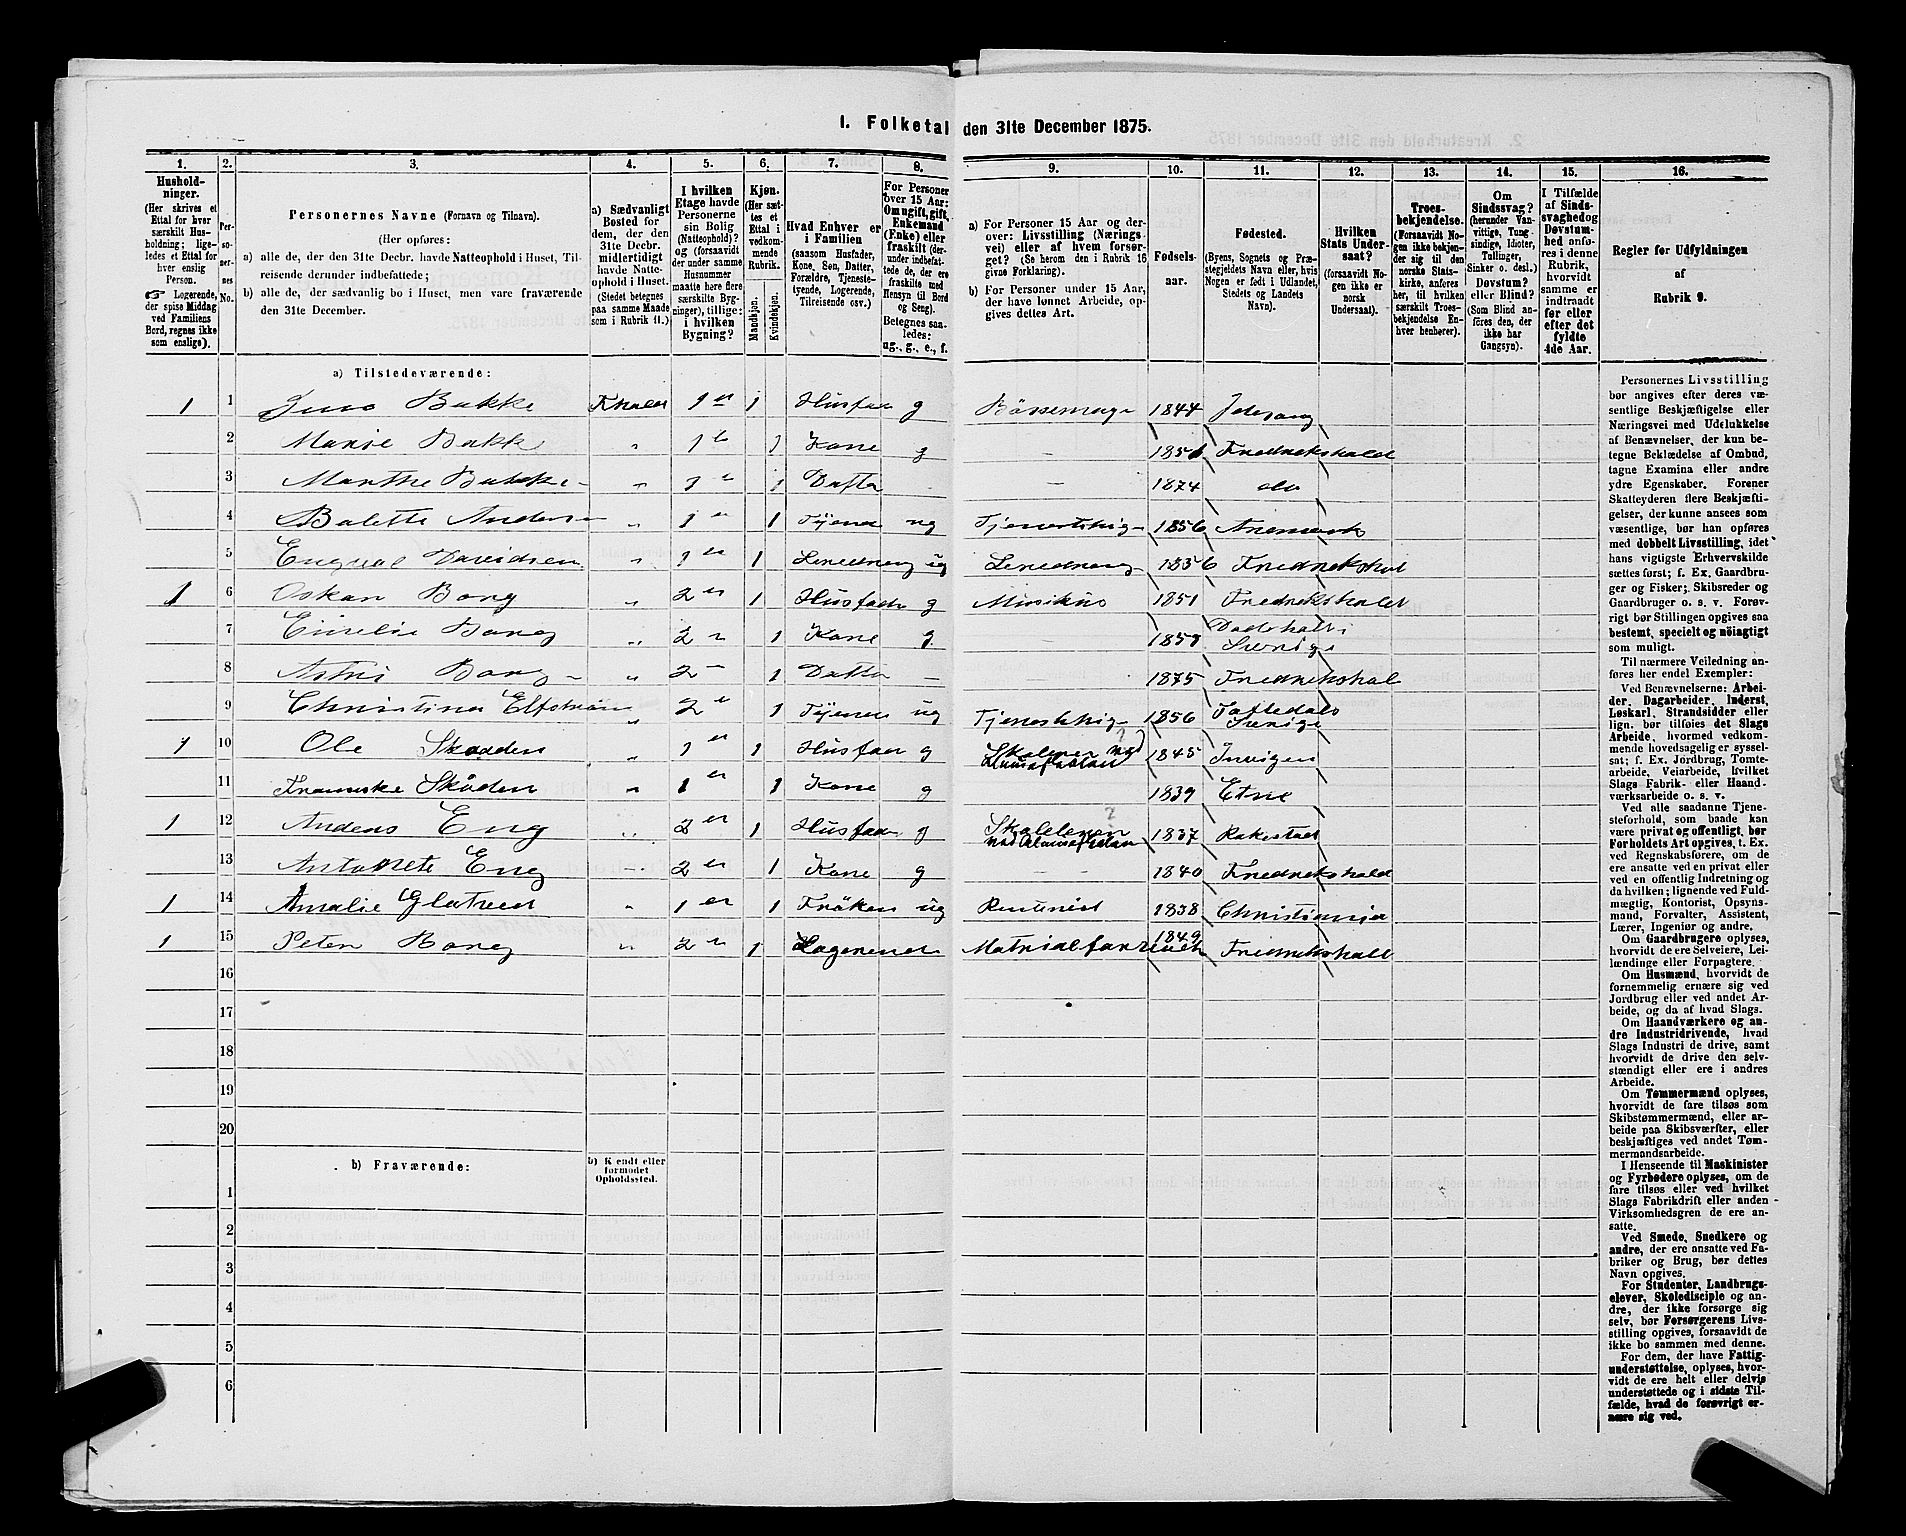 1. Folketal den 31te December 1875.
1. 2. 3. 4. 5. 6. 7. 8. 9. 10. 11. 12. 13. 14. 15. 16.
Hushold-
ninger.
(Her skrives et
Ettal for hver
særskilt Hus-
holdning; lige-
ledes et Ettal for
hver enslig
Person.
☞ Logerende,
der spise Middag
ved Familiens
Bord, regnes ikke
som enslige).
Per-
so-
ner-
nes
No.
Personernes Navne (Fornavn og Tilnavn).
(Her opføres:
a) alle de, der den 31te Decbr. havde Natteophold i Huset, Til-
reisende derunder indbefattede;
b) alle de, der sædvanlig bo i Huset, men vare fraværende
den 31te December.
a) Sædvanligt
Bosted for
dem, der den
31te Decbr.
midlertidigt
havde Natte-
ophold i Huset.
(Stedet betegnes
paa samme Maade
som i Rubrik 11.)
I hvilken
Etage havde
Personerne
sin Bolig
(Natteophold)?
og (forsaavidt
der under samme
Husnummer
maatte høre flere
særskilte Byg-
ninger), tillige:
i hvilken
Bygning?
Kjøn.
(Her sæt-
tes et
Ettal i
vedkom-
mende
Rubrik.
Mandkjøn.
Kvindekjøn.
Hvad Enhver er
i Familien
(saasom Husfader,
Kone, Søn, Datter,
Forældre, Tjeneste-
tyende, Logerende,
Tilreisende osv.)
For Personer
over 15 Aar:
Om ugift, gift,
Enkemand
(Enke) eller
fraskilt (der-
under indbefat-
tede de, der ere
fraskilte med
Hensyn til Bord
og Seng).
Betegnes saa-
ledes:
ug., g., e., f.
a) For Personer 15 Aar og der-
over: Livsstilling (Nærings-
vei) eller af hvem forsør-
get? (Se herom den i Rubrik 16
givne Forklaring).
b) For Personer under 15 Aar,
der have lønnet Arbeide, op-
gives dettes Art.
Fødsels-
aar.
Fødested.
(Byens, Sognets og Præ-
stegjeldets Navn eller, hvis
Nogen er født i Udlandet,
Stedets og Landets
Navn).
Hvilken
Stats Under-
saat?
(forsaavidt No-
gen ikke er
norsk
Undersaat).
Troes-
bekjendelse.
(Forsaavidt No-
gen ikke bekjen-
der sig til den
norske Stats-
kirke, anføres
her, til hvilken
særskilt Troes-
bekjendelse En-
hver henhører).
Om
Sindssvag?
(herunder Van-
vittige, Tung-
sindige, Idioter,
Tullinger,
Sinker o. desl.)
Døvstum?
eller Blind?
(Som Blind an-
føres den, der
ikke har
Gangsyn).
I Tilfælde
af Sinds-
svaghed og
Døvstum-
hed anfø-
res i denne
Rubrik,
hvorvidt
samme er
indtraadt
før eller
efter det
fyldte
4de Aar.
Regler for Udfyldningen
af
Rubrik 9.
a) Tilstedeværende:
1 1 Jens Bakke Fhald 1 1 Husfader g 1844
2 Marie Bakke „ 1 1 Kone g - Fredrikshald
3 Marthe Bakke - „ 1 1 Datter - - 1874 do
4 Bolette Anders - „ 1 1 Tjener ug 1856 Aremark
5 Engval Davidsen „ 1 1 ug 1856 Fredrikshal
1 6 Oskar Bang „ 2 1 Husfader g Musikus 1851 Fredrikshald
7 Emelie Bang „ 2 1 Kone g - Sverige
8 Bang - „ 2 1 Datter - - 1875 Fredrikshal
9 Christina Elfstrøm „ 2 1 Tjener ug 1856 Sverige
1 10 Ole Skaaden „ 1 1 Husfader g 1845 Invigen
11 Franciske Skåden „ 1 1 Kone g 1839 Etne
1 12 Anders Eng „ 2 1 Husfader g 1837 Rakestad
13 Antonete Eng - 2 1 Kone g - 1840 Fredrikshald
1 14 Amalie 1 1 Frøken ug 1838 Christiania
1 15 Peter Bang „ 2 1 Logerende 1849 Fredrikshald
16
17
18
19
20
b) Fraværende: b) Kjendt eller
formodet
Opholdssted.
1
2
3
4
5
6
Personernes Livsstilling
bør angives efter deres væ-
sentlige Beskjæftigelse eller
Næringsvei med Udelukkelse
af Benævnelser, der kun be-
tegne Beklædelse af Ombud,
tagne Examina eller andre
ydre Egenskaber. Forener
Skatteyderen flere Beskjæfti-
gelser, der kunne ansees som
væsentlige, bør han opføres
med dobbelt Livsstilling, idet
hans vigtigste Erhvervskilde
sættes først; f. Ex. Gaardbru-
ger og Fisker; Skibsreder og
Gaardbruger o. s. v. Forøv-
rigt bør Stillingen opgives saa
bestemt, specielt og nöiagtigt
som muligt.
Til nærmere Veiledning an-
føres her endel Exempler:
Ved Benævnelserne: Arbei-
der, Dagarbeider, Inderst,
Løskarl, Strandsidder eller
lign. bør tilføies det Slags
Arbeide, hvormed vedkom-
mende hovedsagelig er syssel-
sat; f. Ex. Jordbrug, Tomte-
arbeide, Veiarbeide, hvilket
Slags Fabrik- eller Haand-
værksarbeide o. s. v.
Ved alle saadanne Tjene-
steforhold, som baade kan
være privat og offentligt, bør
Forholdets Art opgives, t. Ex.
ved Regnskabsførere, om de
ere ansatte ved en privat eller
ved en offentlig Indretning og
da hvilken; lignende ved Fuld-
mægtig, Kontorist, Opsyns-
mand, Forvalter, Assistent,
Lærer, Ingeniør og andre.
Om Gaardbrugere oplyses,
hvorvidt de ere Selveiere, Lei-
lændinge eller Forpagtere.
Om Husmænd, hvorvidt de
fornemmelig ernære sig ved
Jordbrug eller ved andet Ar-
beide, og da af hvad Slags.
Om Haandværkere og an-
dre Industridrivende, hvad
Slags Industri de drive, samt
hvorvidt de drive den selv-
stændigt eller ere i andres
Arbeide.
Om Tømmermænd oplyses,
hvorvidt de fare tilsøs som
Skibstømmermænd, eller ar-
beide paa Skibsværfter, eller
beskjæftiges ved andet Tøm-
mermandsarbeide.
I Henseende til Maskinister
og Fyrbødere oplyses, om de
fare tilsøs eller ved hvilket
Slags Fabrikdrift eller anden
Virksomhedsgren de ere an-
satte.
Ved Smede, Snedkere og
andre, der ere ansatte ved Fa-
briker og Brug, bør dettes
Navn opgives.
For Studenter, Landbrugs-
elever, Skoledisciple og an-
dre, der ikke forsørge sig
selv, bør Forsørgerens Livs-
stilling opgives, forsaavidt de
ikke bo sammen med denne.
For dem, der have Fattig-
understøttelse, oplyses, hvor-
vidt de ere helt eller delvis
understøttede og i sidste Til-
fælde, hvad de forøvrigt er-
nære sig ved.